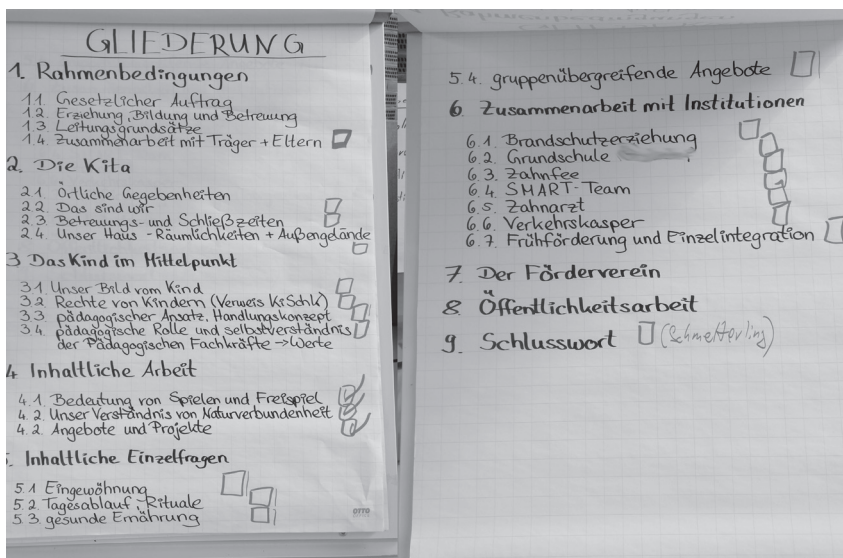 GLIEDERUNG
1. Rahmenbedingungen
1.1. Gesetzlicher Auftrag
1.2. Erziehung, Bildung und Betreuung
1.3. Leitungsgrundsätze
1.4. Zusammenarbeit mit Träger + Eltern
2. Die Kita
2.1. Örtliche Gegebenheiten
2.2. Das sind wir
2.3. Betreuungs- und Schließzeiten
2.4. Unser Haus - Räumlichkeiten + Außengelände
3 Das Kind im Mittelpunkt
3.1. Unser Bild vom Kind
3.2. Rechte von Kindern (Verweis KiSchk)
3.3. pädagogischer Ansatz, Handlungskonzept
3.4. pädagogische Rolle und selbstverständnis
der Pädagogischen Fachkräfte → Werte
4 Inhaltliche Arbeit
4.1. Bedeutung von Spielen und Freispiel
4.2. Unser Verständnis von Naturverbundenheit
4.2. Angebote und Projekte
. Inhaltliche Einzelfragen
5.1 Eingewöhnung
5.2. Tagesablauf, Rituale
5.3. gesunde Ernährung
OTTO
5.4. gruppenübergreifende Angebote
6. Zusammenarbeit mit Institutionen
6.1. Brandschutzerziehung
6.2. Grundschule
6.3. Zahnfee
6.4. SMART-Team
6.5. Zahnarzt
6.6. Verkehrskasper
6.7. Frühförderung und Einzelintegration
7. Der Förderverein
8. Öffentlichkeitsarbeit
9. Schlusswort (Schmetterling)